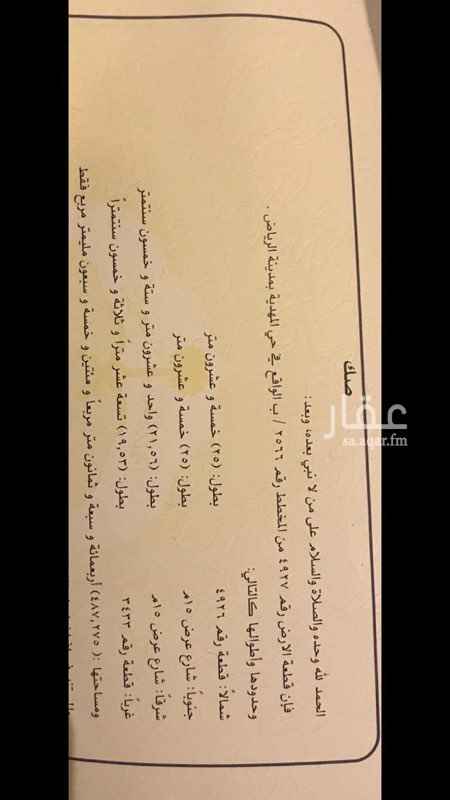 صك
الحمد لله وحده والصلاة والسلام على من لا نبي بعده، وبعد:
فإن قطعة الارض رقم ٤٩٢٧ من المخطط رقم ٢٥٦٦ / ب الواقع في حي المهدية بمدينة الرياض .
وحدودها وأطوالها كالتالي:
شمالاً: قطعة رقم ٤٩٢٦ بطول: (٢٥) خمسة و عشرون متر
جنوباً: شارع عرض ١٥م بطول: (٢٥) خمسة و عشرون متر
شرقاً: شارع عرض ١٥م بطول: (٢١,٥٦) واحد و عشرون متر و ستة و خمسون سنتمتر
غرباً: قطعة رقم ٣٤٣٣ بطول: (١٩,٥٣) تسعة عشر متراً و ثلاثة و خمسون سنتمتراً
ومساحتها :( ٤٨٧,٢٧٥) أربعمائة و سبعة و ثمانون متر مربعاً و مئتين و خمسة و سبعون مليمتر مربع فقط
عقار
sa.aqar.fm